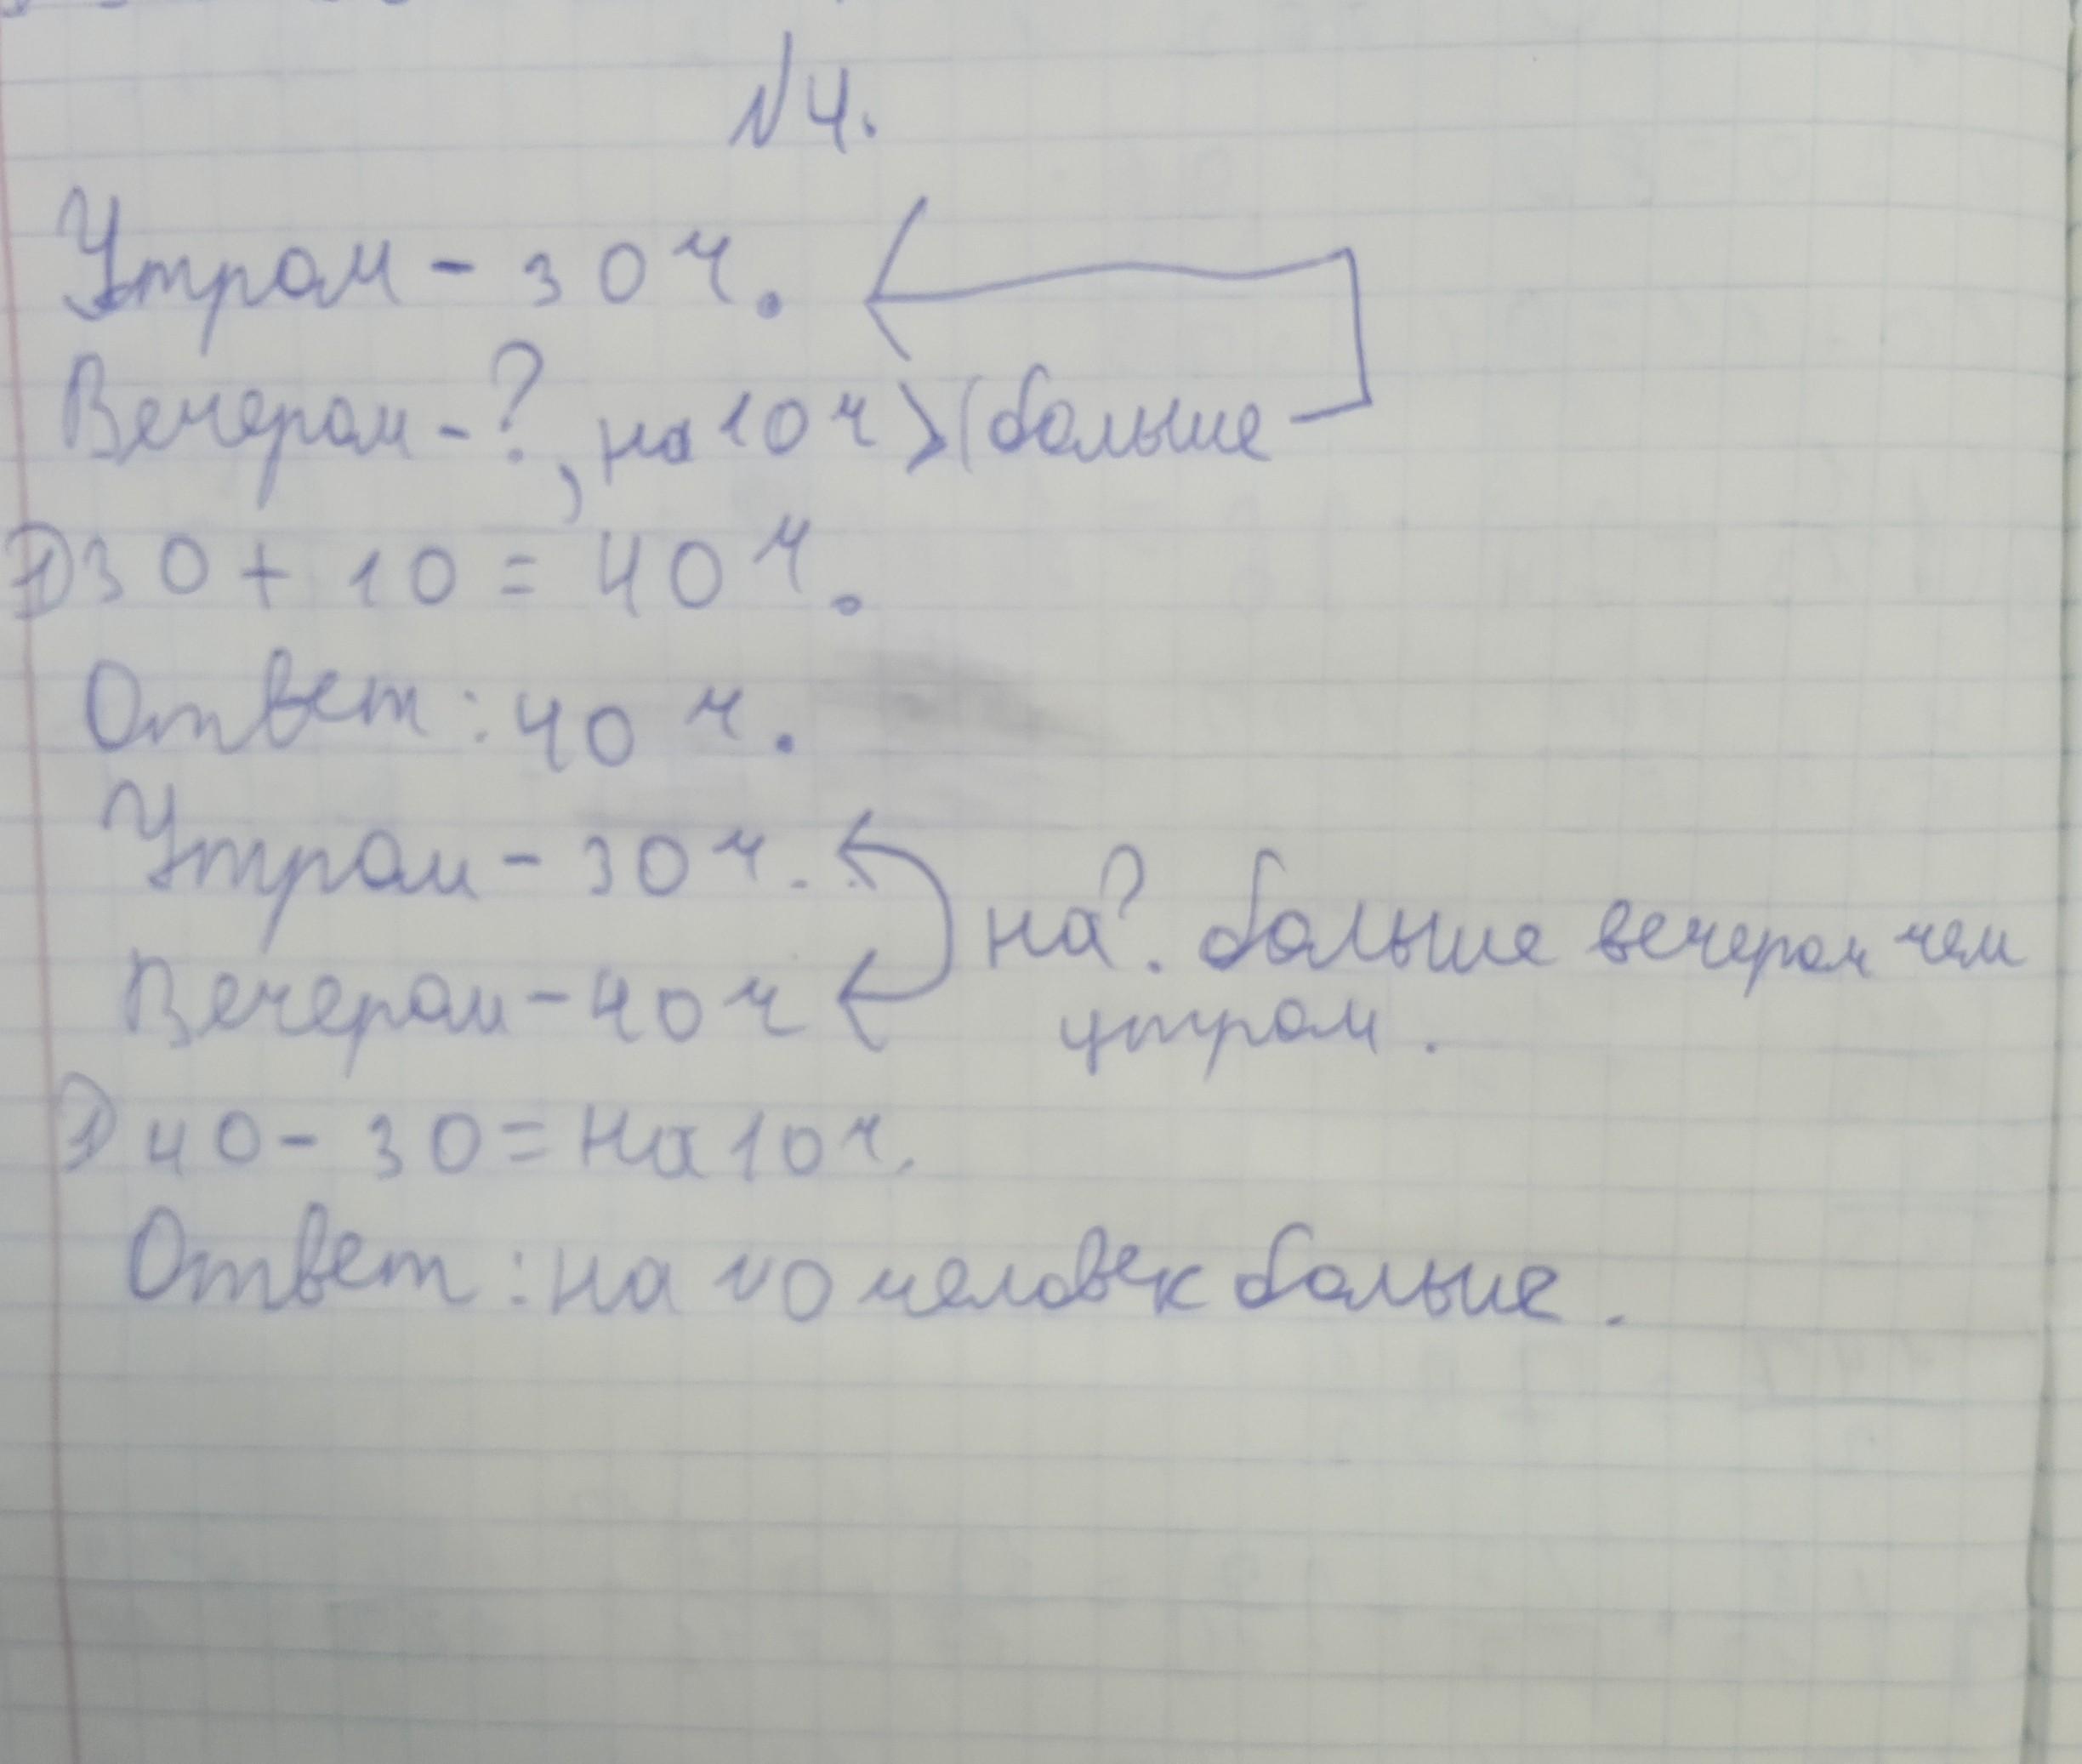 №4.
Утром - 30 ч.
Вечером - ?, на 10 ч > (больше
1) 30 + 10 = 40 ч.
Ответ: 40 ч.
Утром - 30 ч.
на ? больше вечером чем
Вечером - 40 ч
утром.
1) 40 - 30 = на 10 ч.
Ответ: на 10 человек больше.